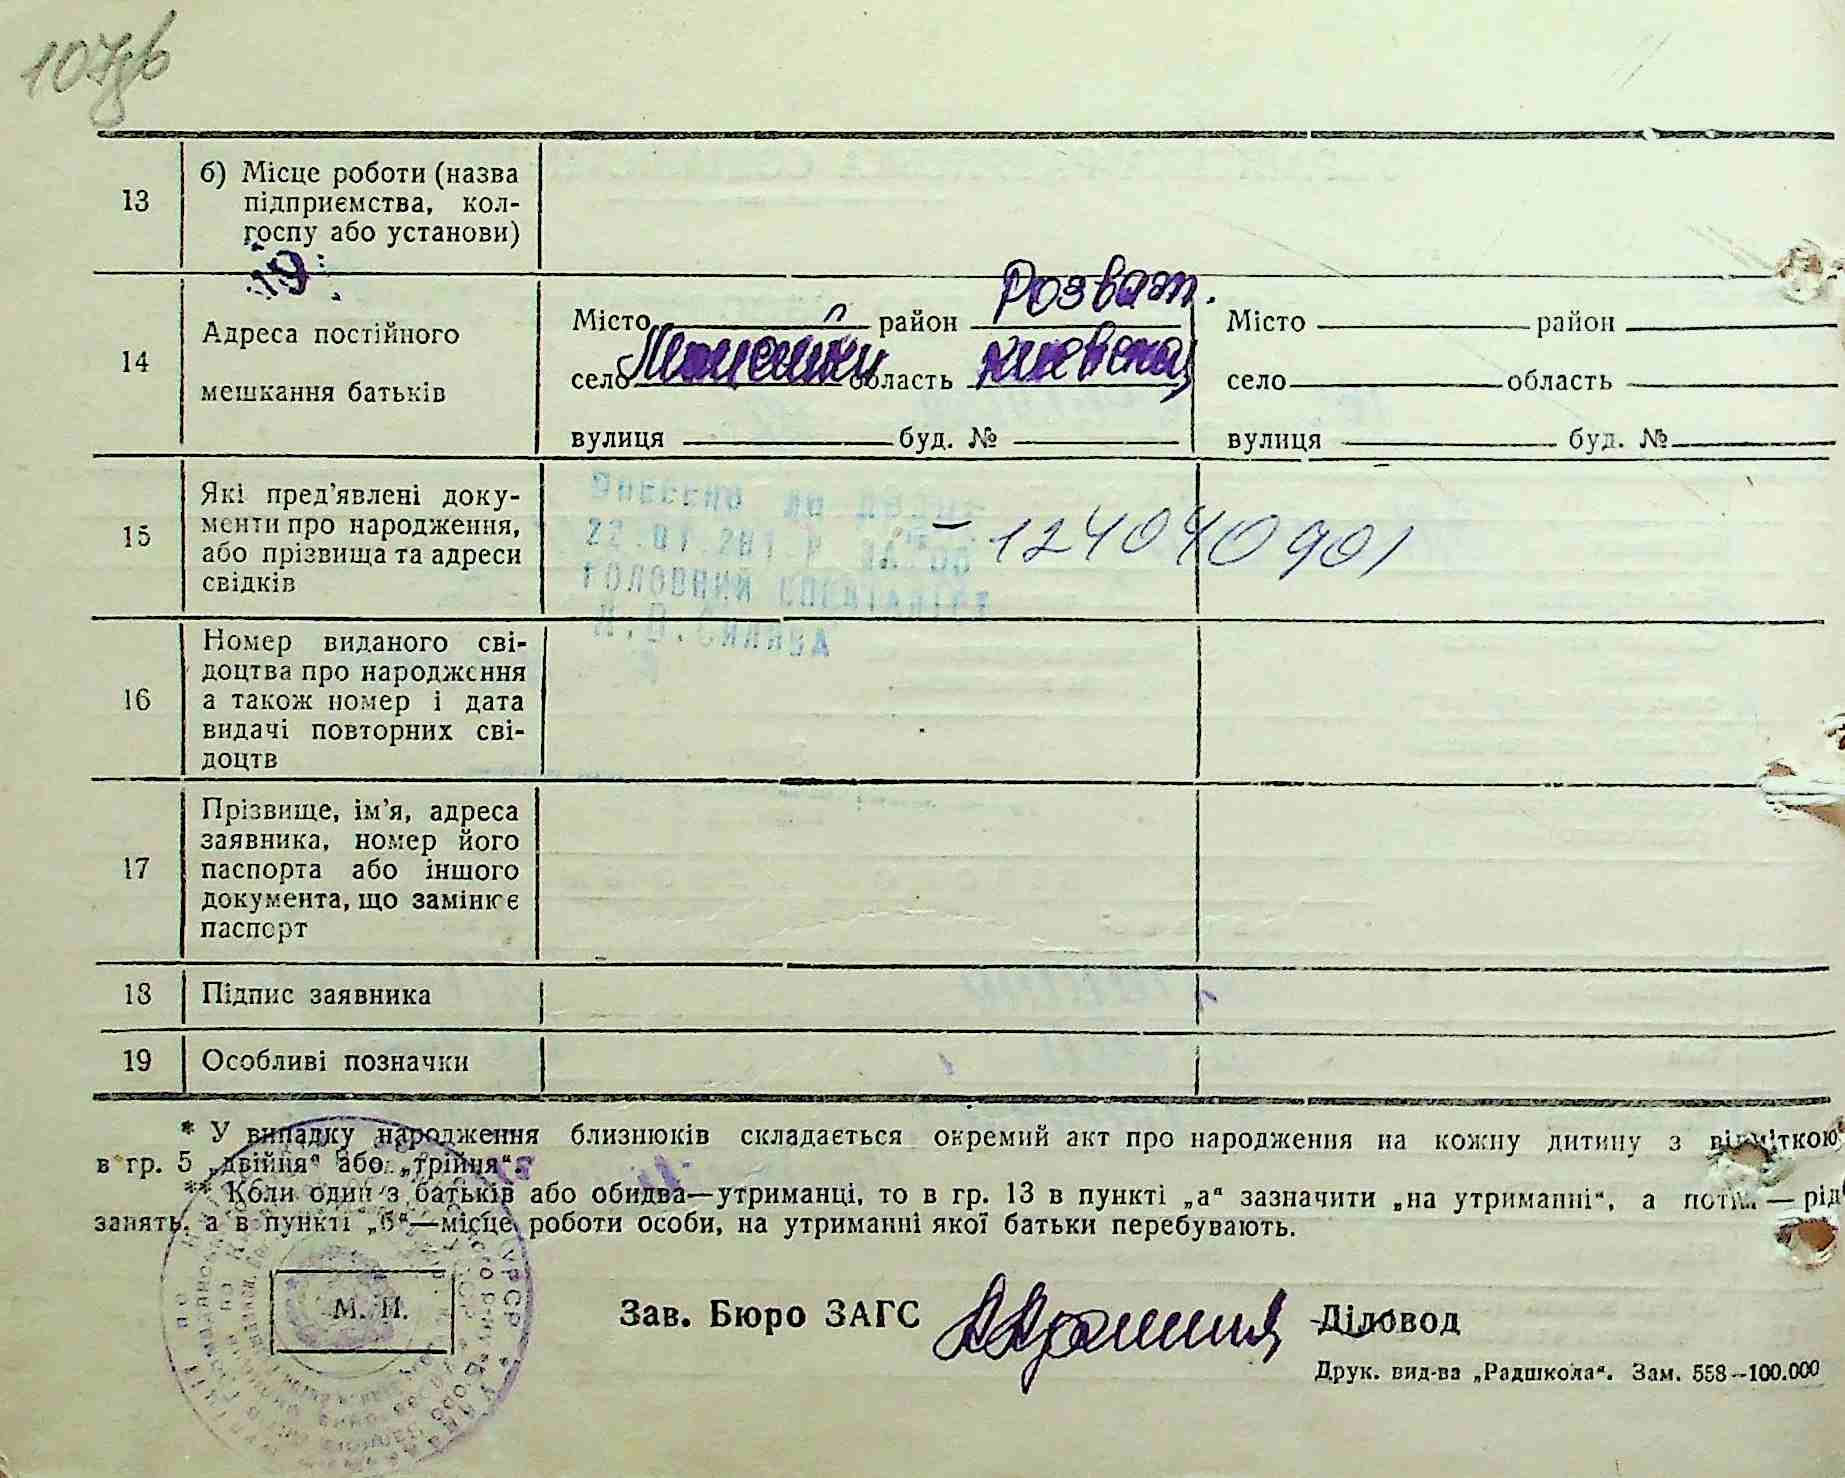 13
б) Місце роботи (назва
підприємства, кол-
госпу або установи)
14
Адреса постійного
мешкання батьків
Місто район Розваж.
село область киевская
вулиця буд. №
Місто район
село область
вулиця буд. №
15
Які пред'явлені доку-
менти про народження,
або прізвища та адреси
свідків
Внесено до
головний спеціаліст
– 124040901
16
Номер виданого сві-
доцтва про народження
а також номер і дата
видачі повторних сві-
доцтв
17
Прізвище, ім'я, адреса
заявника, номер його
паспорта або іншого
документа, що замінює
паспорт
18
Підпис заявника
19
Особливі позначки
* У випадку народження близнюків складається окремий акт про народження на кожну дитину з відміткою
в гр. 5 „двійня“ або „трійня“.
** Коли один з батьків або обидва—утриманці, то в гр. 13 в пункті „а“ зазначити „на утриманні“, а потім — рід
занять, а в пункті „б“—місце роботи особи, на утриманні якої батьки перебувають.
М. П.
Зав. Бюро ЗАГС
Діловод
Друк. вид-ва „Радшкола“. Зам. 558—100.000